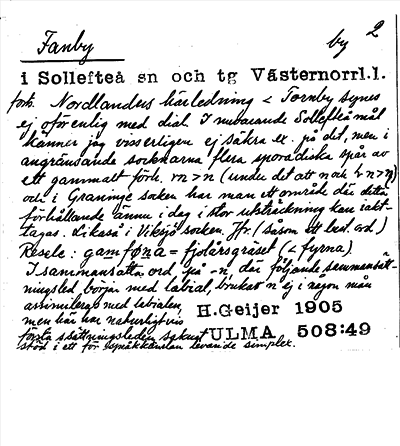 Fanby by 2
i Sollefteå sn och tg Västernorrl.l.
forts. Nordlanders härledning < Tornby synes
ej oförenlig med dial. I nuvarande Sollefteå mål
känner jag visserligen ej säkra ex. på det, men i
angränsande socknarna flera sporadiska spår av
ett gammalt förh. rn > n (under det att n och
och i Graninge socken har man ett område där detta
förhållande ännu i dag i stor utsträckning kan iakt-
tagas. Likaså i Viksjö socken. Jfr. (såsom ett best. ord)
Resele: gamföna = fjolårsgräset (< fyrna).
I sammansatta ord på -n, där följande sammansätt-
ningsled börjar med labial, brukar n ej i någon mån
assimileras med labialen,
men här har naturligtvis
första ssättningsleden saknat
stöd i ett för språkkänslan levande simplex.
H.Geijer 1905
ULMA 508:49